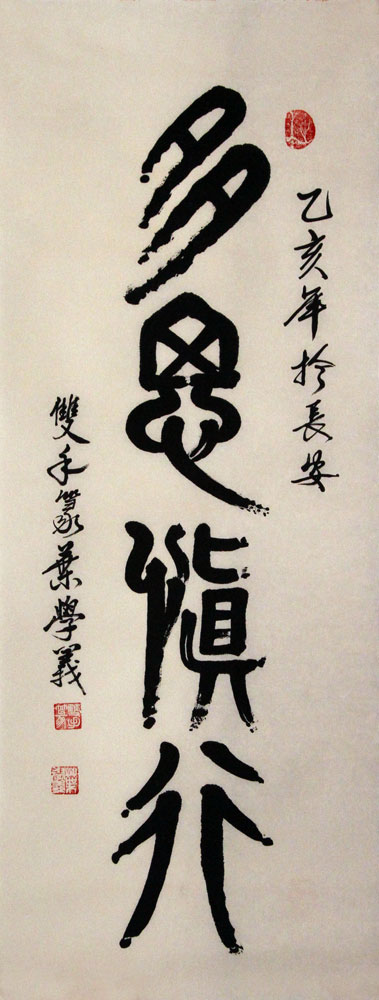 多思慎行
乙亥年於長安
雙手篆葉學義